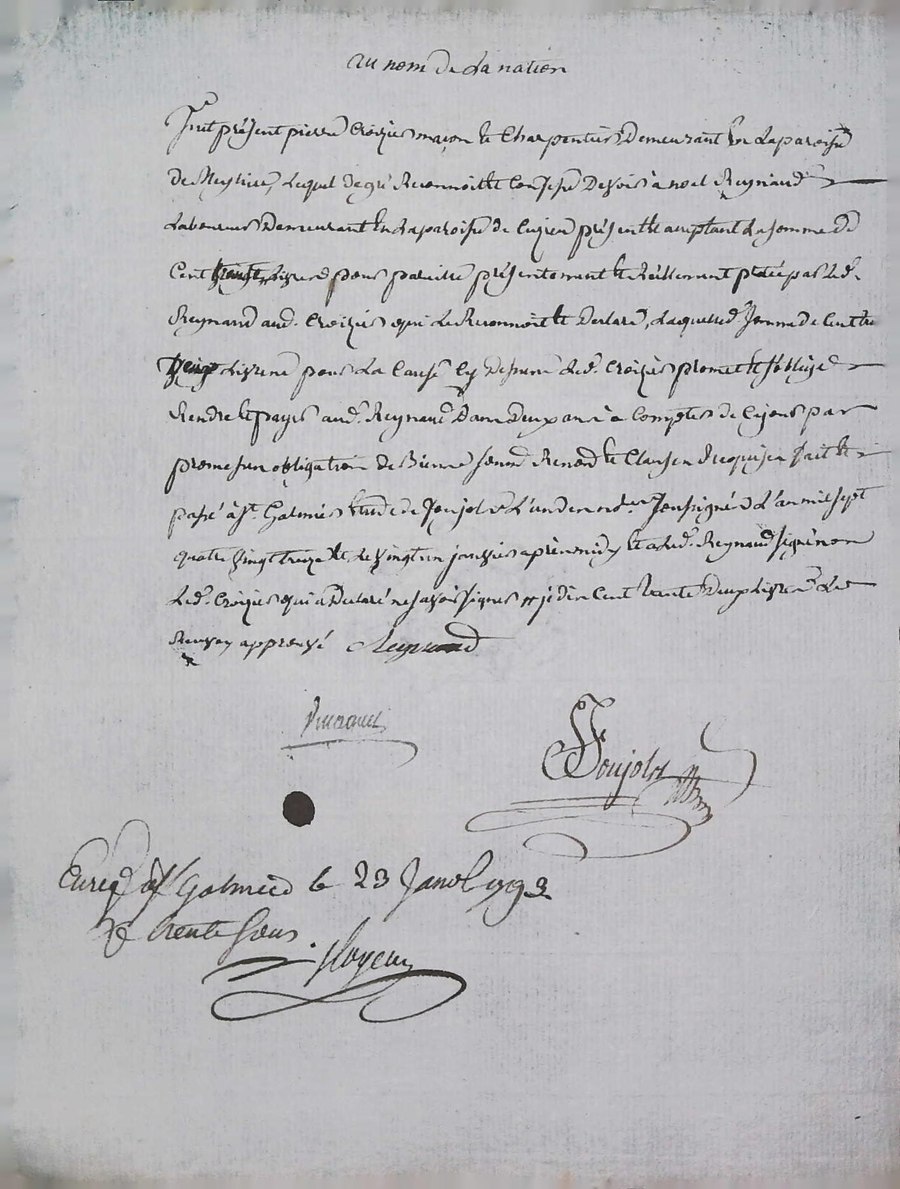 au nom de la nation
Fut présent pierre Croizier maçon et Charpentier Demeurant En la paroisse
de Meylieu, Lequel de gré Reconnoit et Confesse Devoir à noel Reynaud
Laboureur Demeurant En la paroisse de Cuzieu présent et acceptant La somme de
Cent livres pour pareille présentement et Réellement prêtée par led.
Reynaud aud. Croizier qui Le Reconnoit et Declare, Laquelle de somme de Cent
livres pour La Cause Cy Dessus Led. Croizier promet et s'oblige
Rendre et payer aud. Reynaud Dans Deux ans à Compter de Ce jour par
promesse obligation de Biens Renond. et Clauses Requises fait et
passé à St. Galmier Etude de Joujoly L'un des no.res soussignés L'an mil sept
quatre vingt treize et le vingt un janvier après midy et a led. Reynaud signé non
Led. Croizier qui a Declaré ne savoir signer je dis Cent trente Deux Livres Le
Renvoy approuvé Reynaud
Joujoly
Enreg. à St Galmier le 23 Janv. 1793
trente sous